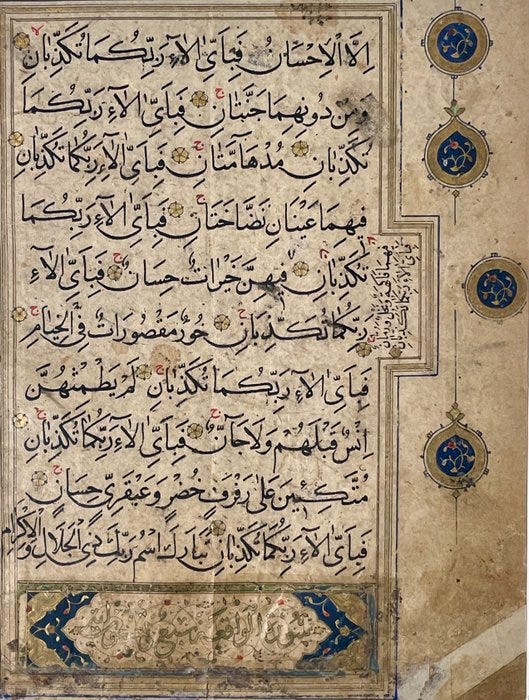 اِلَّا الْاِحْسَانُ فَبِاَيِّ الَآءِ رَبِّكُمَا تُكَذِّبَانِ
وَمِنْ دُونِهِمَا جَنَّتَانِ فَبِاَيِّ الَآءِ رَبِّكُمَا
تُكَذِّبَانِ مُدْهَآمَّتَانِ فَبِاَيِّ الَآءِ رَبِّكُمَا تُكَذِّبَانِ
فِيهِمَا عَيْنَانِ نَضَّاخَتَانِ فَبِاَيِّ الَآءِ رَبِّكُمَا
تُكَذِّبَانِ فِيهِنَّ خَيْرَاتٌ حِسَانٌ فَبِاَيِّ الَآءِ
رَبِّكُمَا تُكَذِّبَانِ حُورٌ مَقْصُورَاتٌ فِي الْخِيَامِ
فَبِاَيِّ الَآءِ رَبِّكُمَا تُكَذِّبَانِ لَمْ يَطْمِثْهُنَّ
اِنْسٌ قَبْلَهُمْ وَلَا جَآنٌّ فَبِاَيِّ الَآءِ رَبِّكُمَا تُكَذِّبَانِ
مُتَّكِئِينَ عَلَى رَفْرَفٍ خُضْرٍ وَعَبْقَرِيٍّ حِسَانٍ
فَبِاَيِّ الَآءِ رَبِّكُمَا تُكَذِّبَانِ تَبَارَكَ اسْمُ رَبِّكَ ذِي الْجَلَالِ وَالْاِكْرَامِ
فيهما فاكهة ونخل ورمان
فباي الآء ربكما تكذبان
سورة الواقعة